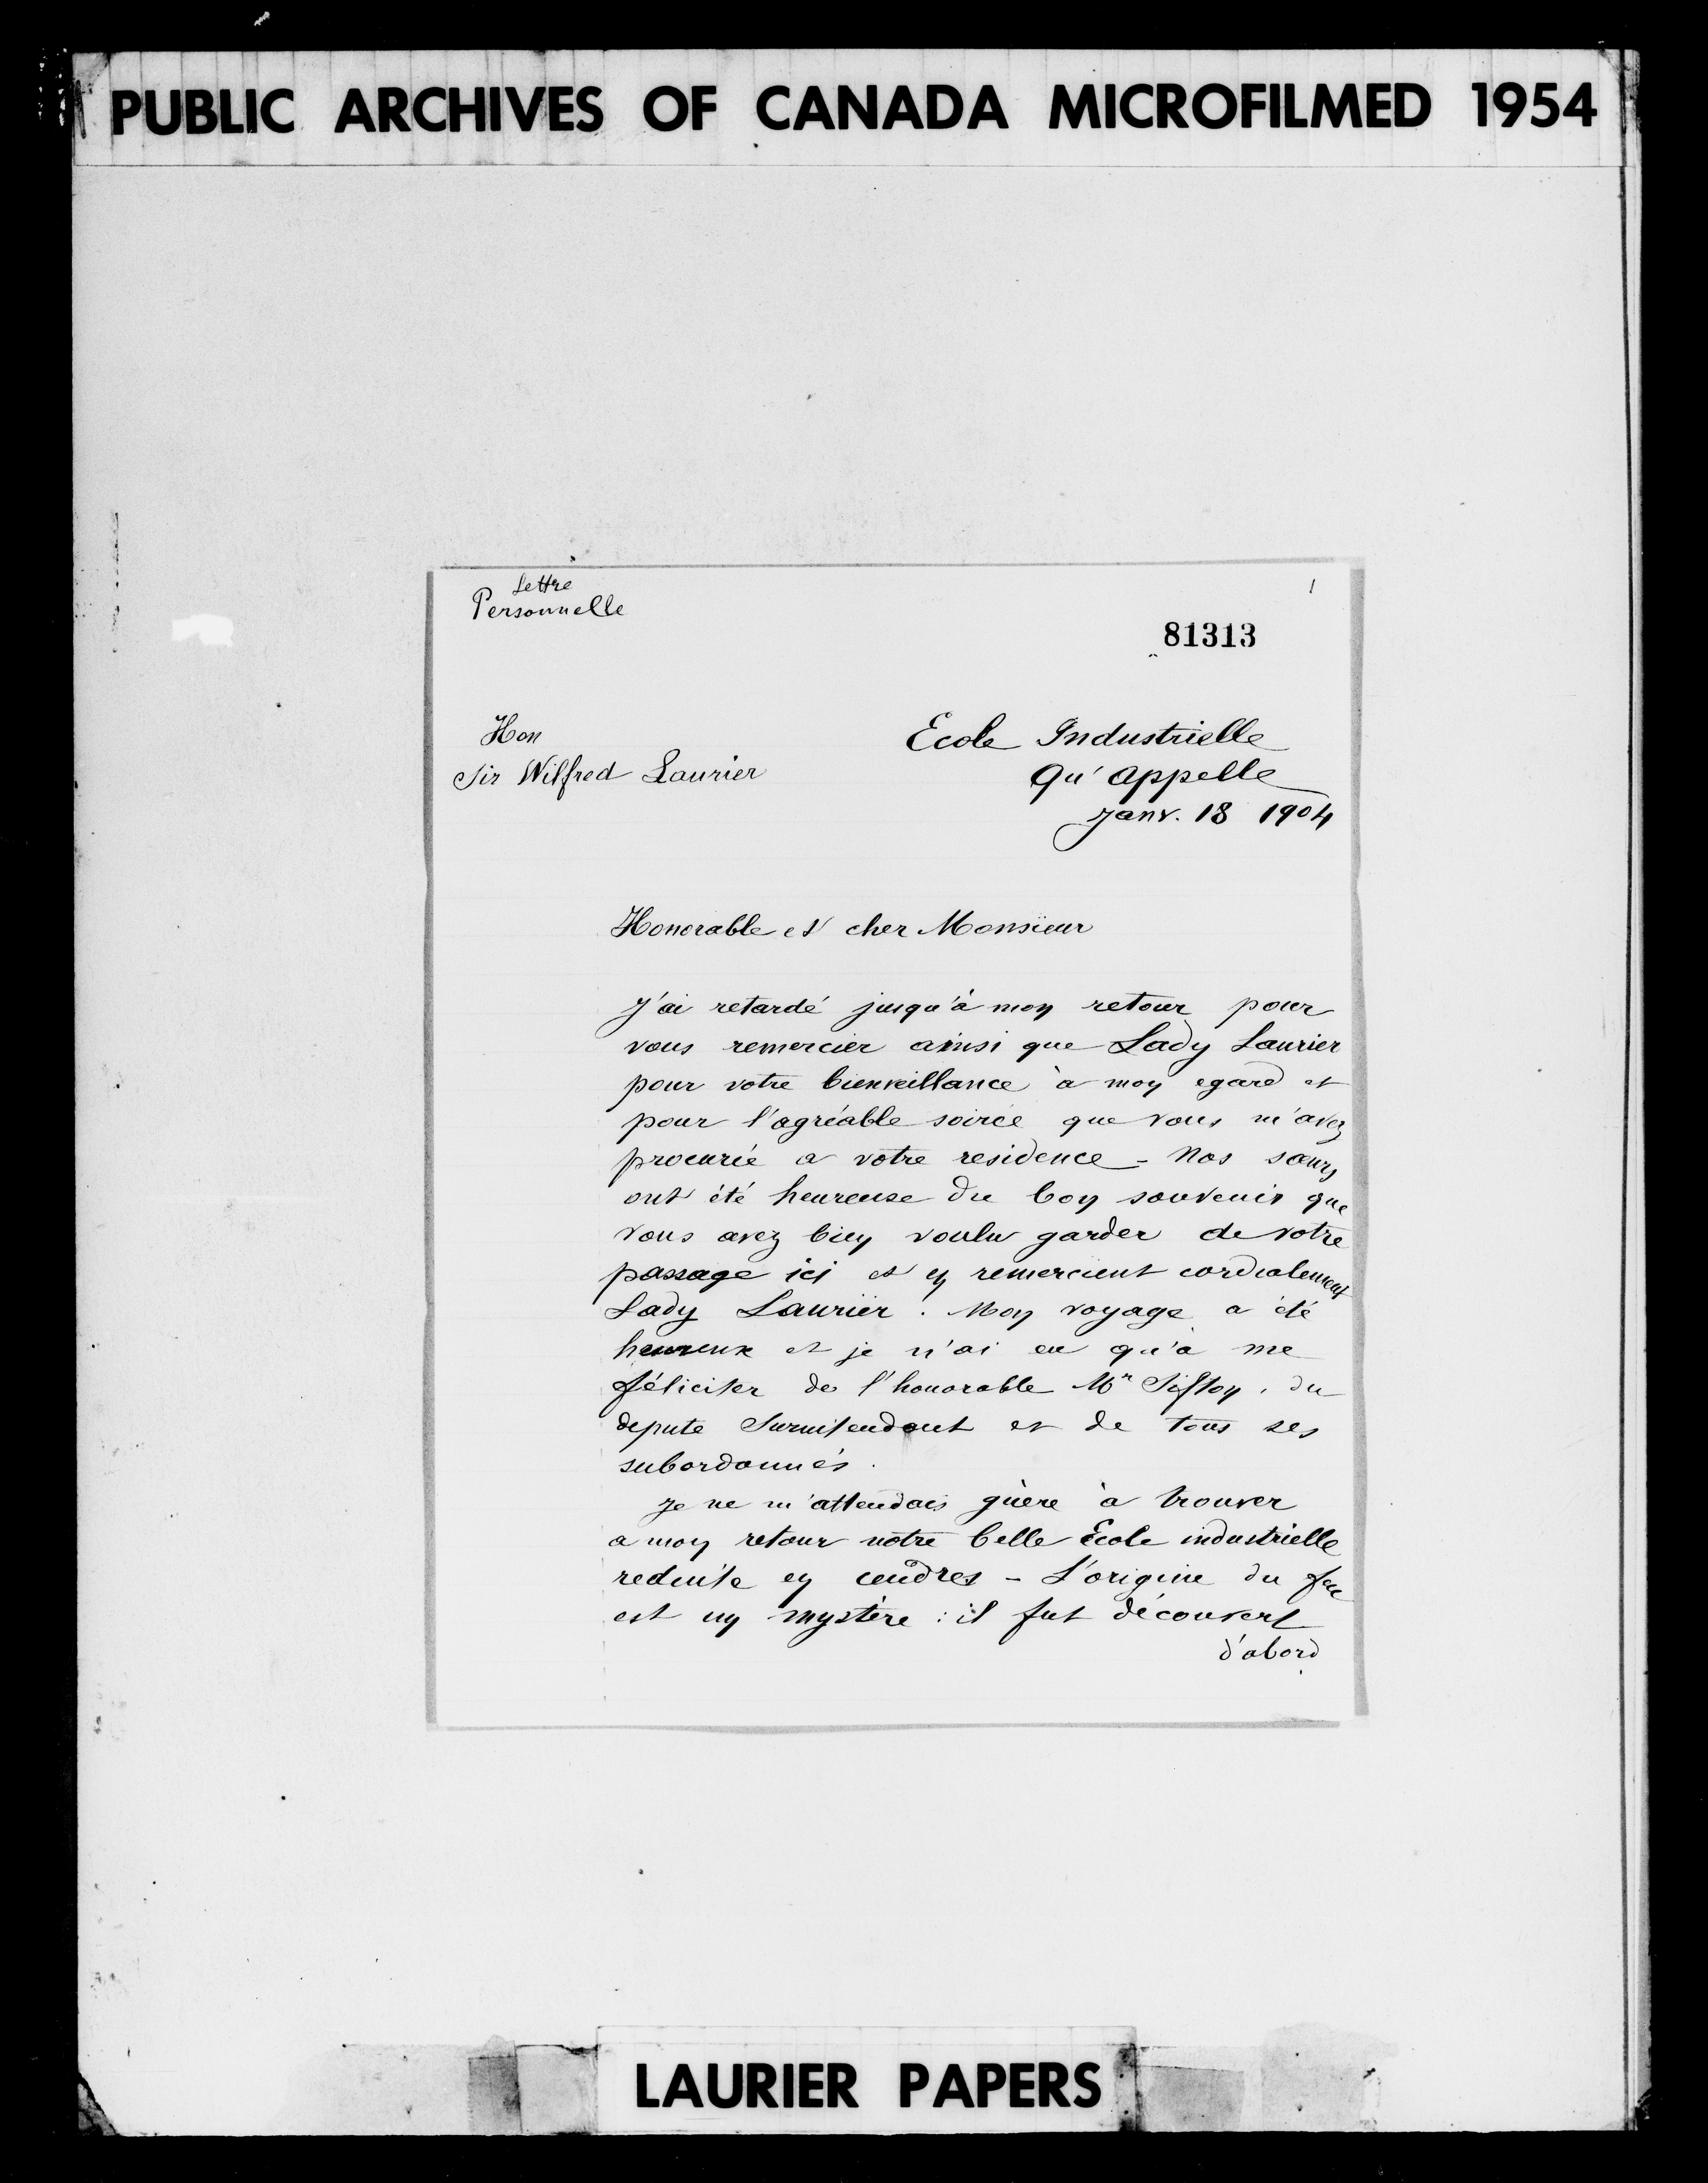 PUBLIC ARCHIVES OF CANADA MICROFILMED 1954
Lettre
Personnelle
1
81313
Hon
Sir Wilfred Laurier
Ecole Industrielle
Qu'Appelle
Janv. 18 1904
Honorable et cher Monsieur
J'ai retardé jusqu'à mon retour pour
vous remercier ainsi que Lady Laurier
pour votre bienveillance à mon egard et
pour l'agréable soirée que vous m'avez
procurée a votre residence - Nos sœurs
ont été heureuse du bon souvenir que
vous avez bien voulu garder de votre
passage ici et en remercient cordialement
Lady Laurier. Mon voyage a été
heureux et je n'ai eu qu'à me
féliciter de l'honorable Mr Sifton, du
depute Surintendant et de tous ses
subordonnés.
Je ne m'attendais guère à trouver
a mon retour notre belle Ecole industrielle
reduite en cendres - L'origine du feu
est un mystère : il fut découvert
d'abord
LAURIER PAPERS